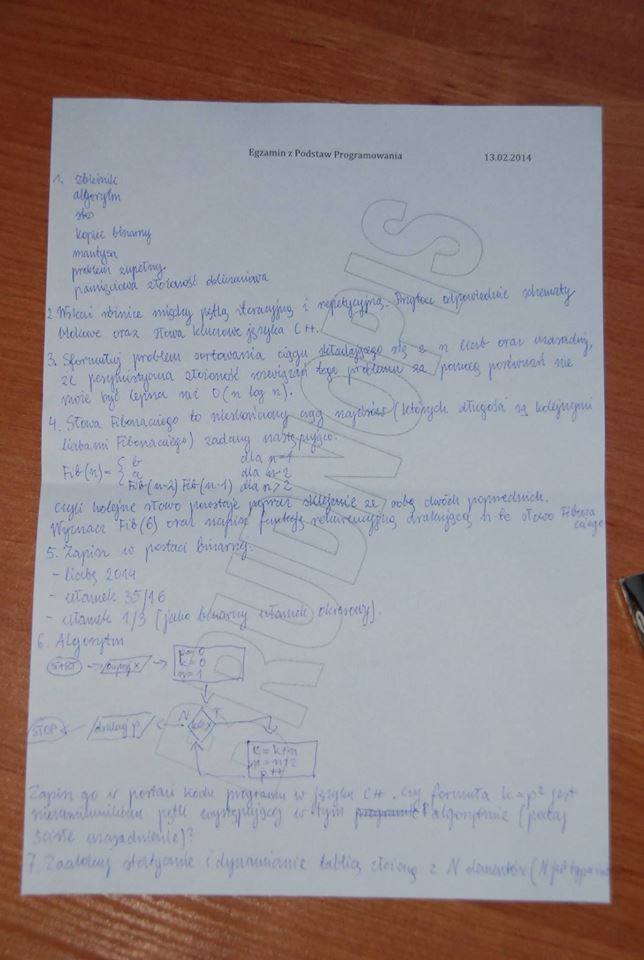 Egzamin z Podstaw Programowania 13.02.2014
BRUDNOPIS
1. zbieżnik
algorytm
stos
kopiec binarny
mantysa
problem zupełny
pamięciowa złożoność obliczeniowa
2. Wskaż różnice między pętlą iteracyjną i repetycyjną. odpowiednie schematy
blokowe oraz słowa kluczowe języka C++.
3. Sformułuj problem sortowania ciągu składającego się z n liczb oraz uzasadnij,
że pesymistyczna złożoność rozwiązań tego problemu za pomocą porównań nie
może być lepsza niż O(n log n).
4. Słowa Fibonacciego to nieskończony ciąg napisów (których długości są kolejnymi
liczbami Fibonacciego) zadany następująco:
Fib(n) = { b dla n=1
a dla n=2
Fib(n-2) Fib(n-1) dla n>2
czyli kolejne słowo powstaje poprzez sklejenie ze sobą dwóch poprzednich.
Wyznacz Fib(6) oraz napisz funkcję rekurencyjną drukującą n-te słowo Fibonacciego
5. Zapisz w postaci binarnej:
- liczbę 2014
- ułamek 35/16
- ułamek 1/3 [jako binarny ułamek okresowy].
6. Algorytm
START
czytaj x
p=0
k=0
n=1
STOP
drukuj p
N
T
k<x
k=k+n
n=n+2
p++
Zapisz go w postaci kodu programu w języku C++. Czy formuła k=p² jest
niezmiennikiem pętli występującej w tym algorytmie (podaj
ścisłe uzasadnienie)?
7. Zaalokuj statycznie i dynamicznie tablicę złożoną z N elementów (N jest typu